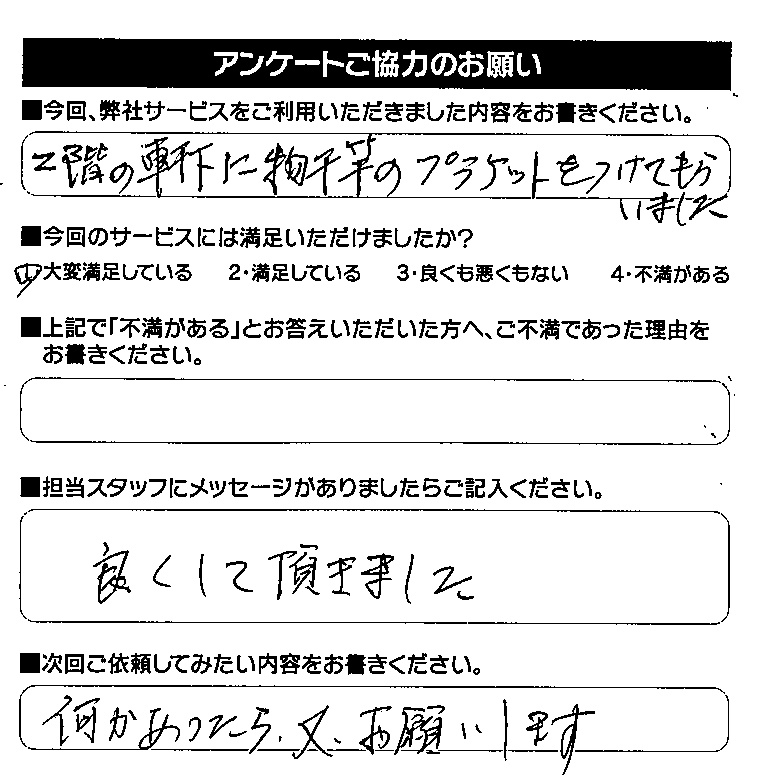 アンケートご協力のお願い
■今回、弊社サービスをご利用いただきました内容をお書きください。
2階の軒下に物干竿のブラケットをつけてもら
いました
■今回のサービスには満足いただけましたか?
1・大変満足している 2・満足している 3・良くも悪くもない 4・不満がある
■上記で「不満がある」とお答えいただいた方へ、ご不満であった理由を
お書きください。
■担当スタッフにメッセージがありましたらご記入ください。
良くして頂きました
■次回ご依頼してみたい内容をお書きください。
何かあったら、又、お願いします